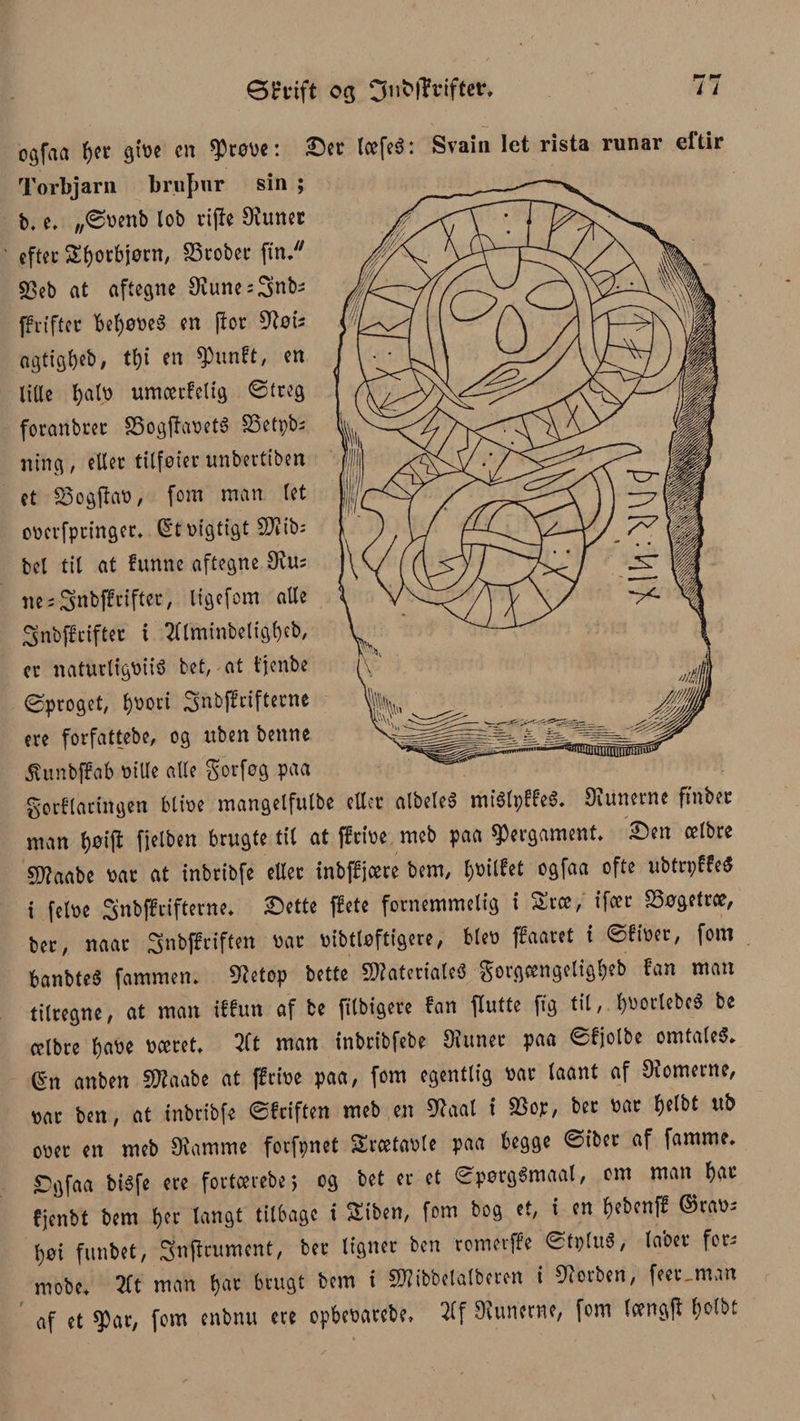 Skrift og Indskrifter. 77
ogsaa her give en Prøve: Der læses: Svain let rista runar eftir
Torbjarn bruþur sin;
d. e. „Svend lod riste Runer
efter Thorbjørn, Broder sin.”
Ved at aftegne Rune-Ind-
skrifter behøves en stor Nøi-
agtighed, thi en Punkt, en
lille halv umærkelig Streg
forandrer Bogstavets Betyd-
ning, eller tilføier undertiden
et Bogstav, som man let
overspringer. Et vigtigt Mid-
del til at kunne aftegne Ru-
ne-Indskrifter, ligesom alle
Indskrifter i Almindelighed,
er naturligviis det, at kjende
Sproget, hvori Indskrifterne
ere forfattede, og uden denne
Kundskab ville alle Forsøg paa
Forklaringen blive mangelfulde eller aldeles mislykkes. Runerne finder
man høist sjelden brugte til at skrive med paa Pergament. Den ældre
Maade var at indridse eller indskjære dem, hvilket ogsaa ofte udtrykkes
i selve Indskrifterne. Dette skete fornemmelig i Træ, især Bøgetræ,
der, naar Indskriften var vidtløftigere, blev skaaret i Skiver, som
bandtes sammen. Netop dette Materiales Forgængelighed kan man
tilregne, at man ikkun af de sildigere kan slutte sig til, hvorledes de
ældre have været. At man indridsede Runer paa Skjolde omtales.
En anden Maade at skrive paa, som egentlig var laant af Romerne,
var den, at indridse Skriften med en Naal i Vox, der var heldt ud
over en med Ramme forsynet Trætavle paa begge Sider af samme.
Ogsaa disse ere fortærede; og det er et Spørgsmaal, om man har
kjendt dem her langt tilbage i Tiden, som dog et, i en hedensk Grav-
høi fundet, Instrument, der ligner den romerske Stylus, lader for-
mode. At man har brugt dem i Middelalderen i Norden, seer man
af et Par, som endnu ere opbevarede. Af Runerne, som længst holdt